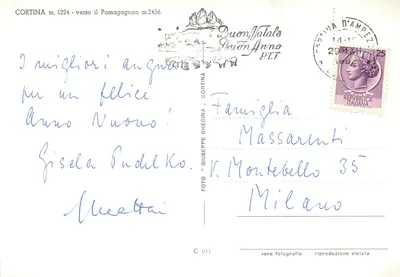 CORTINA m. 1224 - verso il Pomagagnon m. 2456
Buon Natale
Buon Anno
P.T.T
CORTINA D'AMPEZ
25
I migliori auguri
per un felice
Anno Nuovo!
Gisela Pudelko.
FOTO - GIUSEPPE GHEDINA - CORTINA
Famiglia
Massarenti
V. Montebello 35
Milano
C 041
vera fotografia riproduzione vietata